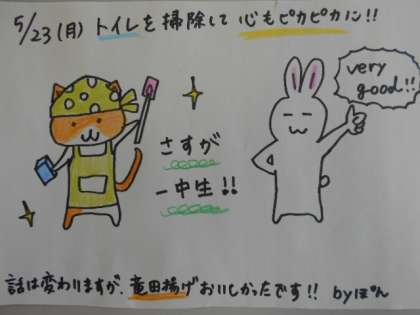 5/23(月) トイレを掃除して 心もピカピカに!!
very good!!
さすが
一中生!!
話は変わりますが、竜田揚げおいしかったです!! byぽん